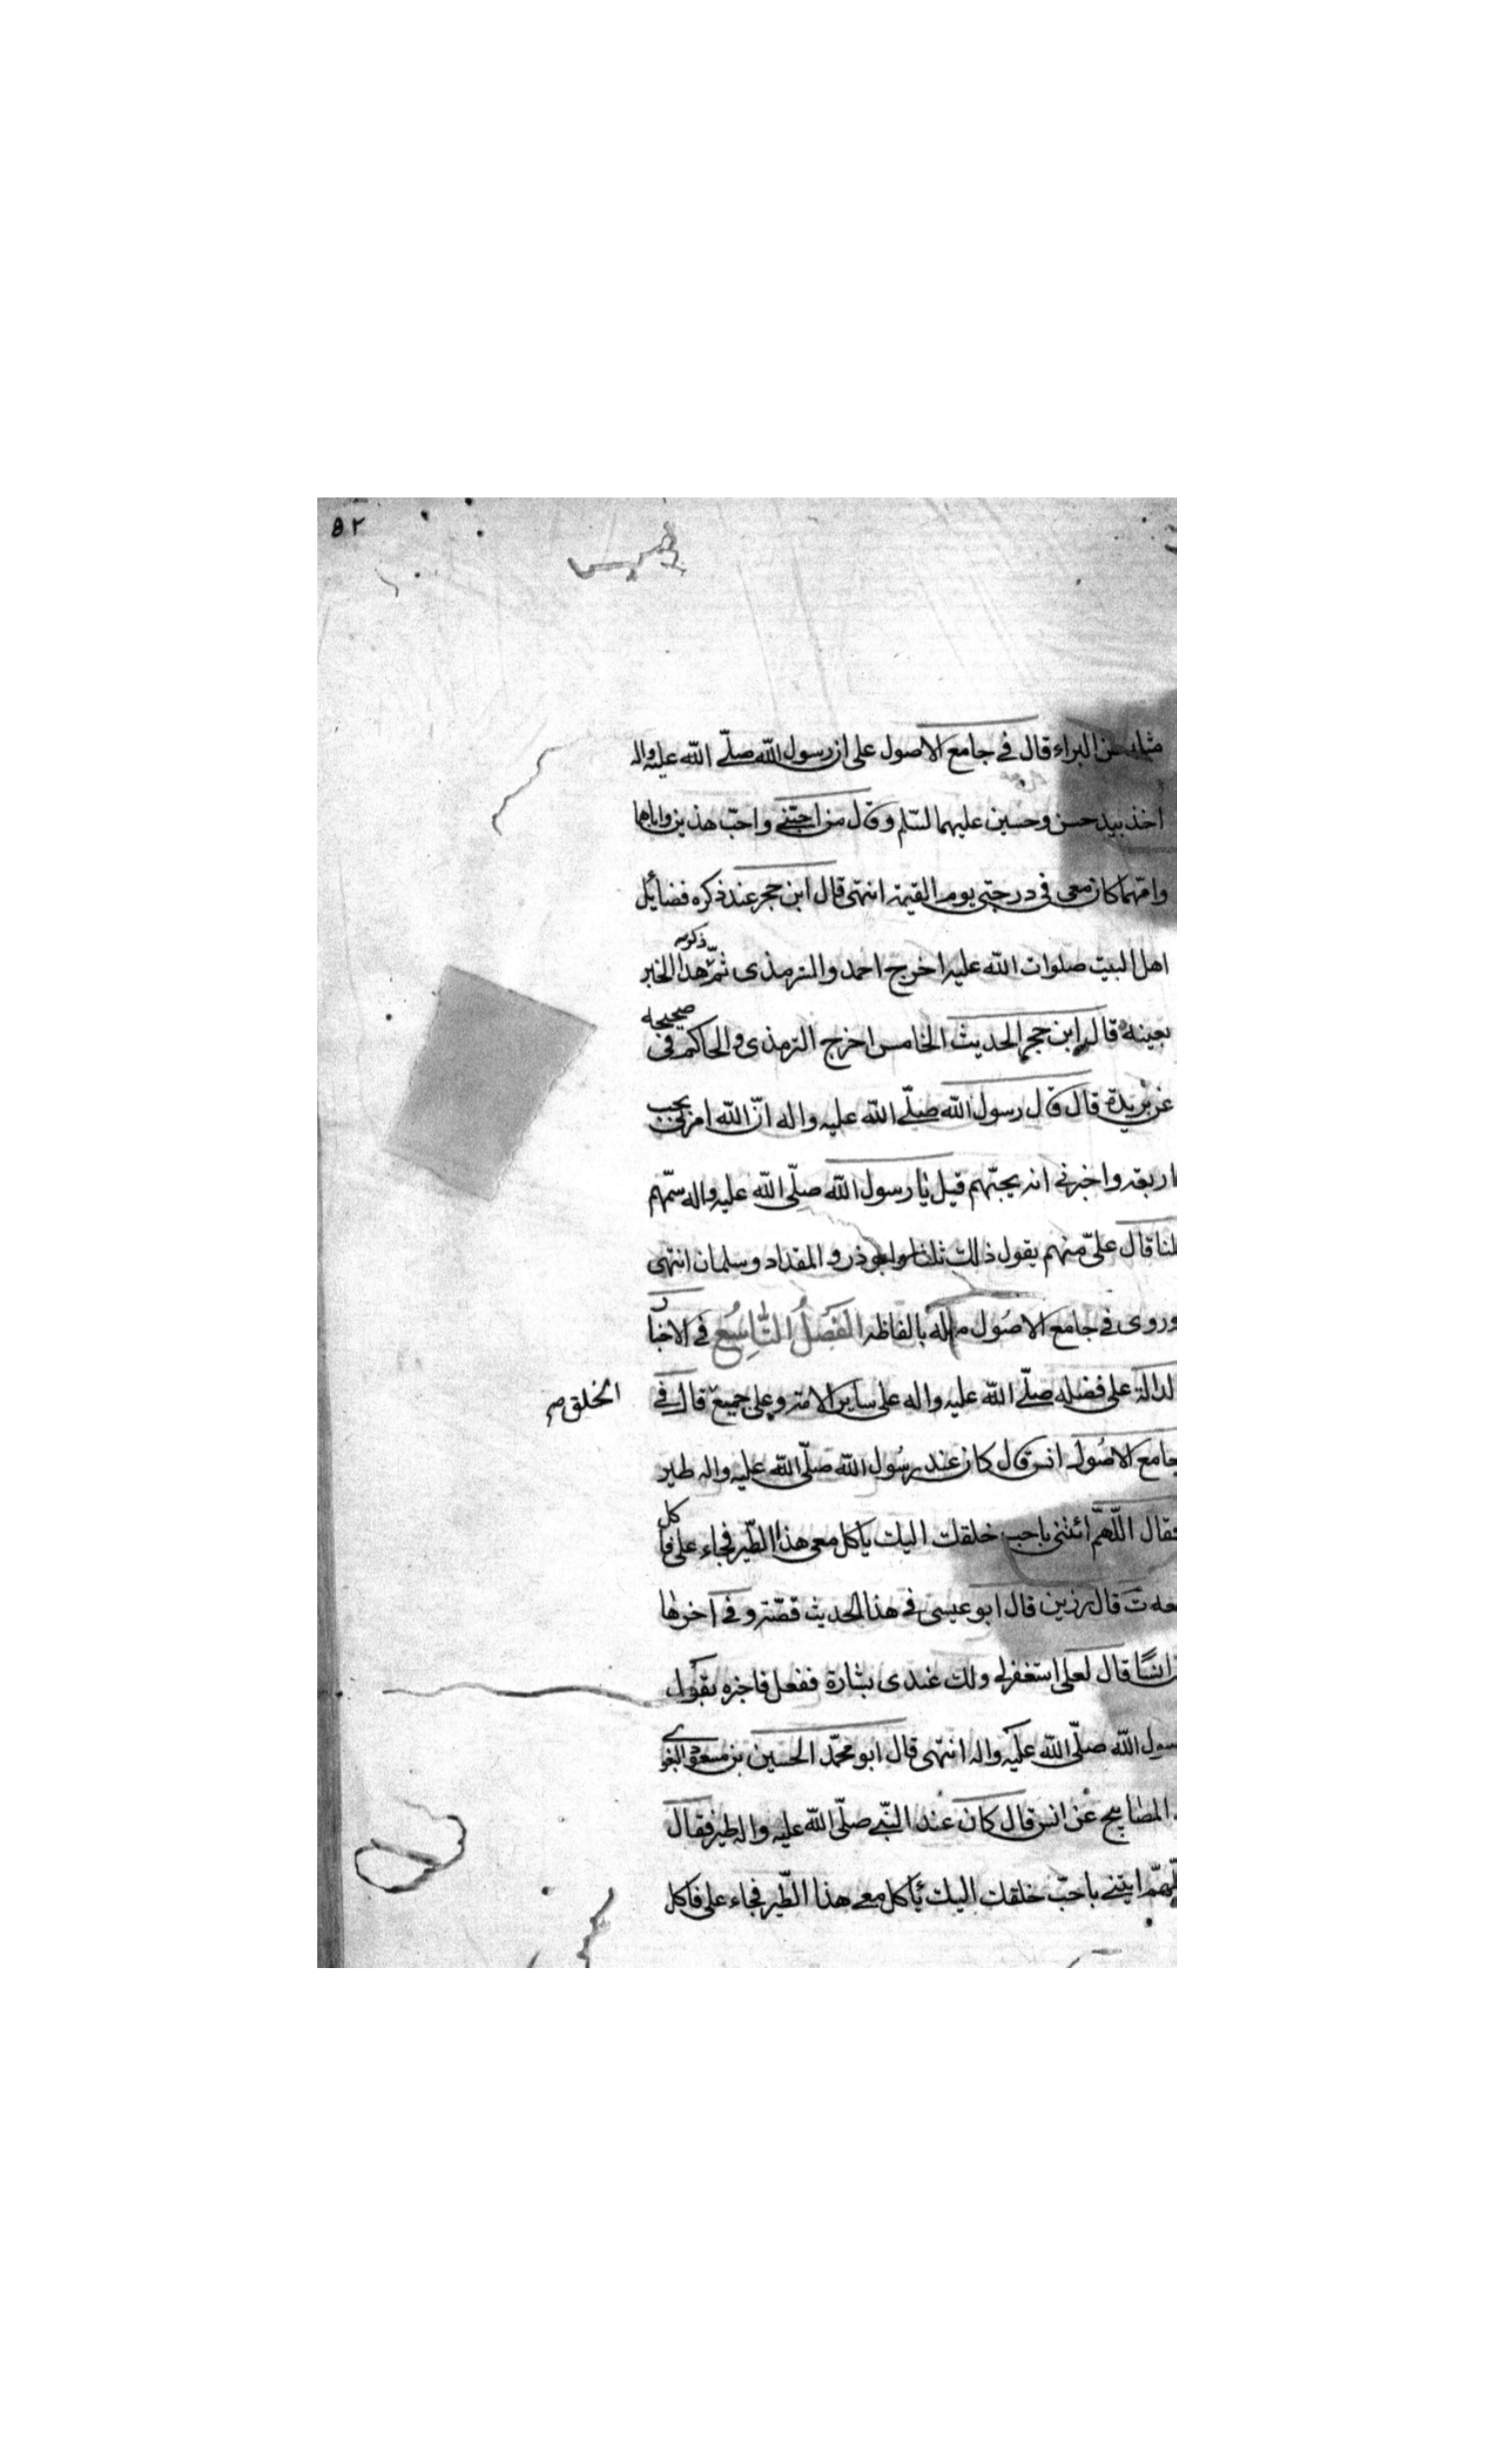 ٥٢
مثله عن البراء قال في جامع الاصول على ان رسول الله صلّى الله عليه واله
اخذ بيد حسن وحسين عليهما السّلم وقال من احبّني واحبّ هذين واباهما
وامّهما كان معى فى درجتى يوم القيمة انتهى قال ابن حجر عند ذكره فضائل
اهل البيت صلوات الله عليه اخرج احمد والترمذى ثمّ ذكر هذا الخبر
بعينه قال ابن حجر الحديث الخامس اخرج الترمذى والحاكم فى صحيحه
عن بريدة قال قال رسول الله صلّى الله عليه واله انّ الله امرنى بحب
اربعة واخبرني انه يحبّهم قيل يا رسول الله صلّى الله عليه واله سمّهم
لنا قال علىّ منهم يقول ذالك ثلثا وابوذر والمقداد وسلمان انتهى
وروى في جامع الاصول مثله بالفاظه الفَصلُ التّاسِع في الاخبار
لدالة على فضله صلّى الله عليه واله على ساير الامة وعلى جميع قال في
الخلق صح
جامع الاصُول انس قال كان عند رسُول الله صلّى الله عليه واله طير
فقال اللّهمّ ائتنى باحب خلقك اليك ياكل معى هذا الطّير فجاء على فاكل
معه ت قال رزين قال ابو عيسى في هذا الحديث قصّة وفي آخرها
ان انسًا قال لعلى استغفر لي ولك عندى بشارة ففعل فاخبره بقول
سول الله صلّى الله عليه واله انتهى قال ابو محمّد الحسين بن مسعود البغوي
المصابيح عن انس قال كان عند النّبي صلّى الله عليه واله طير فقال
لّهمّ ايتني باحبّ خلقك اليك ياكل معي هذا الطّير فجاء على فاكل